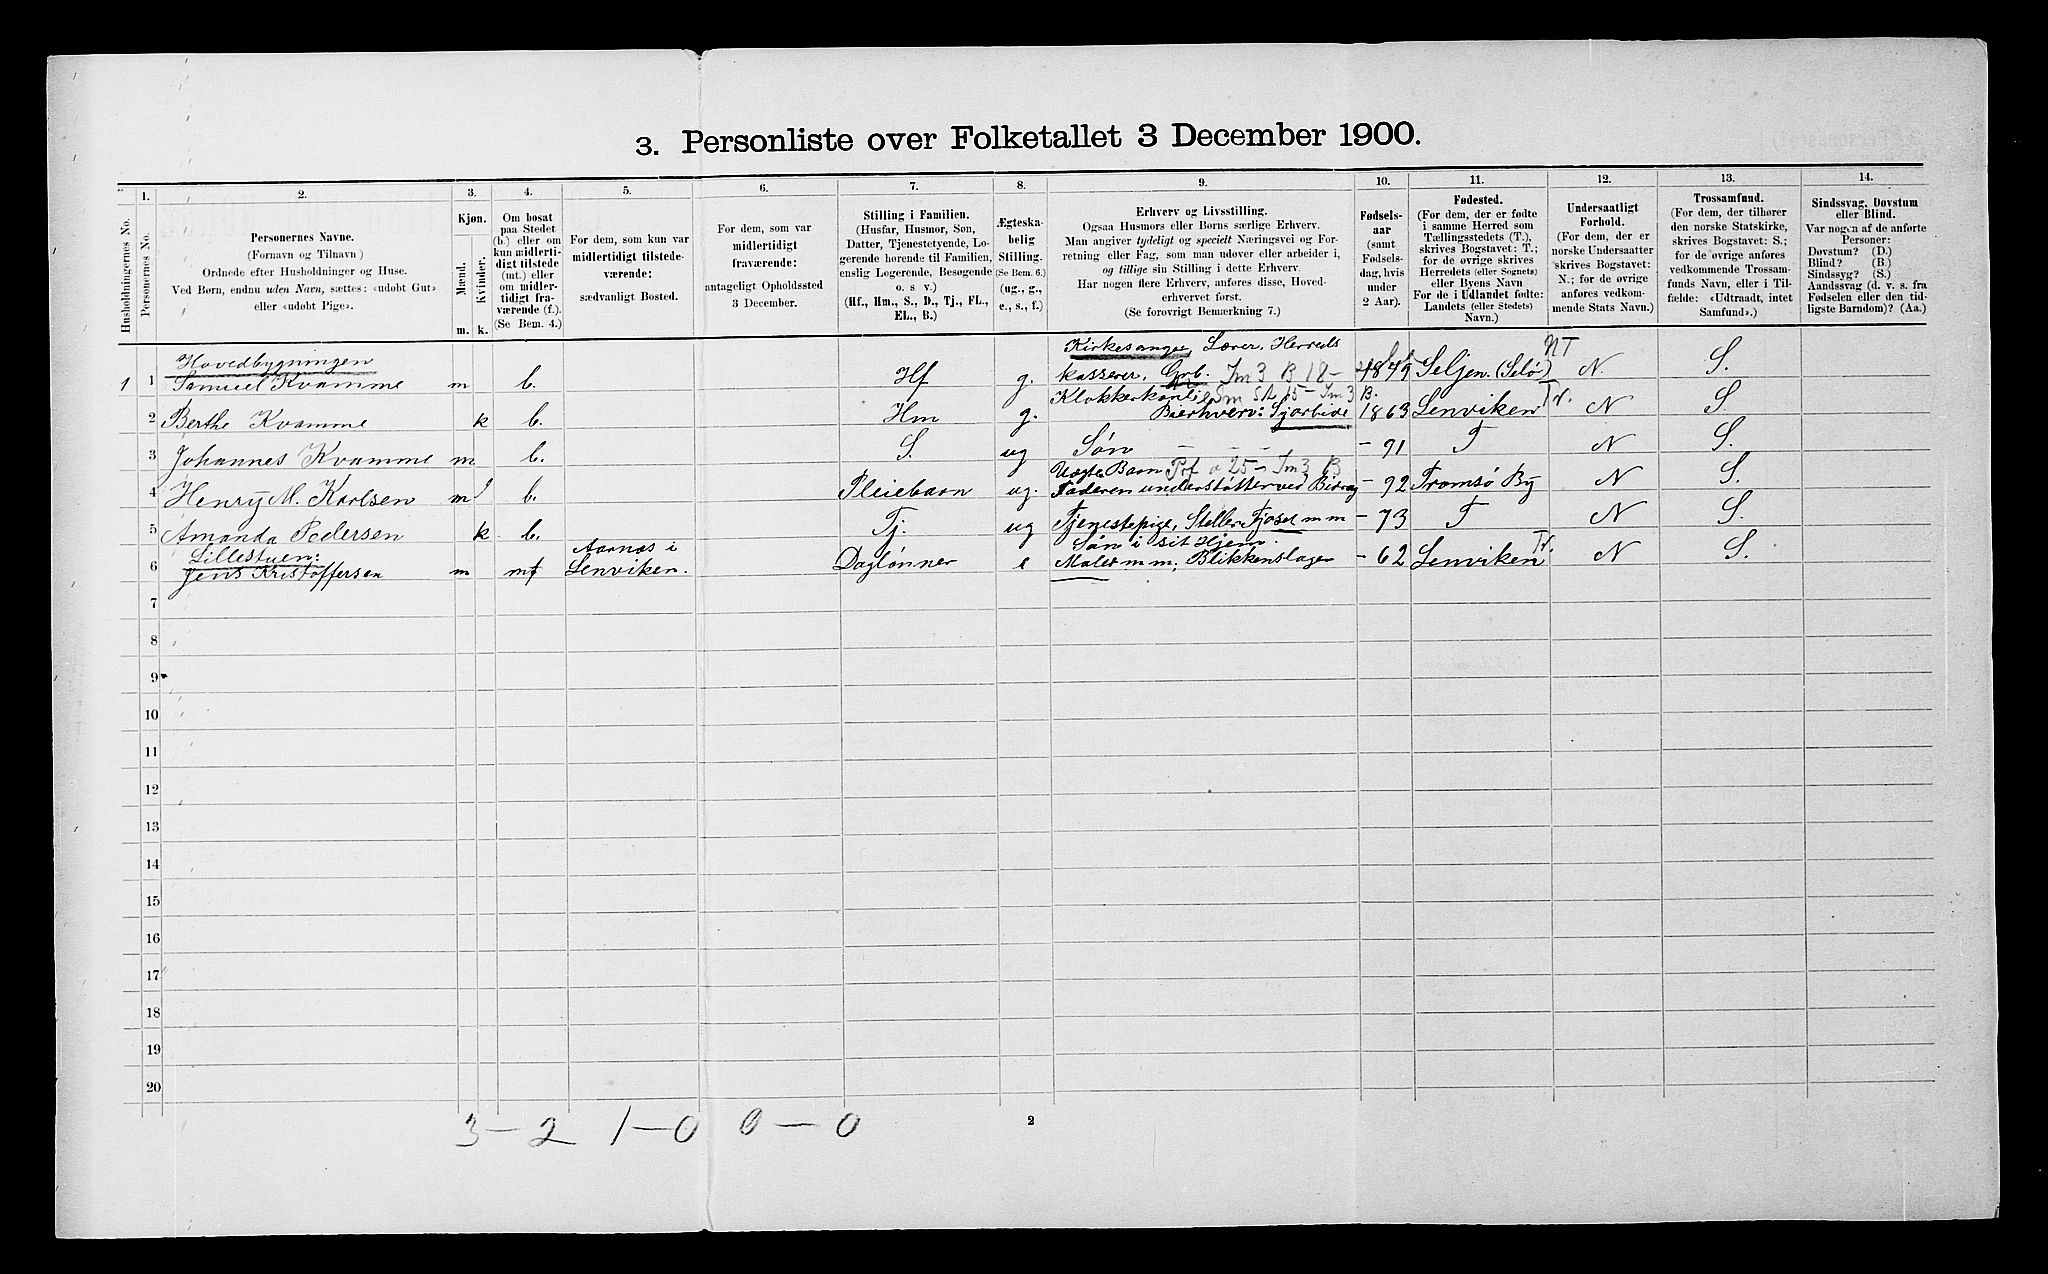 3. Personliste over Folketallet 3 December 1900.
Husholdningernes No.
1.
Personernes No.
2.
Personernes Navne.
(Fornavn og Tilnavn)
Ordnede efter Husholdninger og Huse.
Ved Børn, endnu uden Navn, sættes: «udøbt Gut»
eller «udøbt Pige».
3.
Kjøn.
Mænd.
Kvinder.
m. k.
4.
Om bosat
paa Stedet
(b.) eller om
kun midlerti-
digt tilstede
(mt.) eller
om midler-
tidigt fra-
værende (f.).
(Se Bem. 4.)
5.
For dem, som kun var
midlertidigt tilstede-
værende:
sædvanligt Bosted.
6.
For dem, som var
midlertidigt
fraværende:
antageligt Opholdssted
3 December.
7.
Stilling i Familien.
(Husfar, Husmor, Søn,
Datter, Tjenestetyende, Lo-
gerende hørende til Familien,
enslig Logerende, Besøgende
o. s. v.)
(Hf., Hm., S., D., Tj., FL.,
EL., B.)
8.
Ægteska-
belig
Stilling.
(Se Bem. 6.)
(ug., g.,
e., s., f.)
9.
Erhverv og Livsstilling.
Ogsaa Husmors eller Børns særlige Erhverv.
Man angiver tydeligt og specielt Næringsvei og For-
retning eller Fag, som man udøver eller arbeider i,
og tillige sin Stilling i dette Erhverv.
Har nogen flere Erhverv, anføres disse, Hoved-
erhvervet først.
(Se forøvrigt Bemærkning 7.)
10.
Fødsels-
aar
(samt
Fødsels-
dag, hvis
under
2 Aar).
11.
Fødested.
(For dem, der er fødte
i samme Herred som
Tællingsstedets (T.),
skrives Bogstavet: T.;
for de øvrige skrives
Herredets (eller Sognets)
eller Byens Navn
For de i Udlandet fødte:
Landets (eller Stedets)
Navn.)
12.
Undersaatligt
Forhold.
(For dem, der er
norske Undersaatter
skrives Bogstavet:
N.; for de øvrige
anføres vedkom-
mende Stats Navn.)
13.
Trossamfund.
(For dem, der tilhører
den norske Statskirke,
skrives Bogstavet: S.;
for de øvrige anføres
vedkommende Trossam-
funds Navn, eller i Til-
fælde: «Udtraadt, intet
Samfund».)
14.
Sindssvag, Døvstum
eller Blind.
Var nogen af de anførte
Personer:
Døvstum? (D.)
Blind? (B.)
Sindssyg? (S.)
Aandssvag (d. v. s. fra
Fødselen eller den tid-
ligste Barndom)? (Aa.)
Hovedbygningen Kirkesanger, Lærer, Herreds NT
1 1 Samuel Kvamme m b. Hf g. kasserer, Grb. Im 3 B 18 - 1849 Seljen. (Selø) N. S.
Klokkerkone
2 Berthe Kvamme k b. Hm g. Bierhverv: 1863 Lenviken Tr. N S.
3 Johannes Kvamme m b. S. ug Søn - 91 T N S.
Uægte Barn
4 Henry M. Karlsen m b. Pleiebarn ug. Faderen understøtter ved Bidrag - 92 Tromsø By N S.
5 Amanda Pedersen k b. Tj. ug Tjenestepige, Steller Fjøset m m - 73 T N S.
Lillestuen: Aarnes i Søn i sit Hjem. Tr.
6 Jens Kristoffersen m mt Lenviken. Daglønner e Maler m m, Blikkenslager - 62 Lenviken N S.
7
8
9
10
11
12
13
14
15
16
17
18
19
20
3 - 2 1 - 0 0 - 0
2